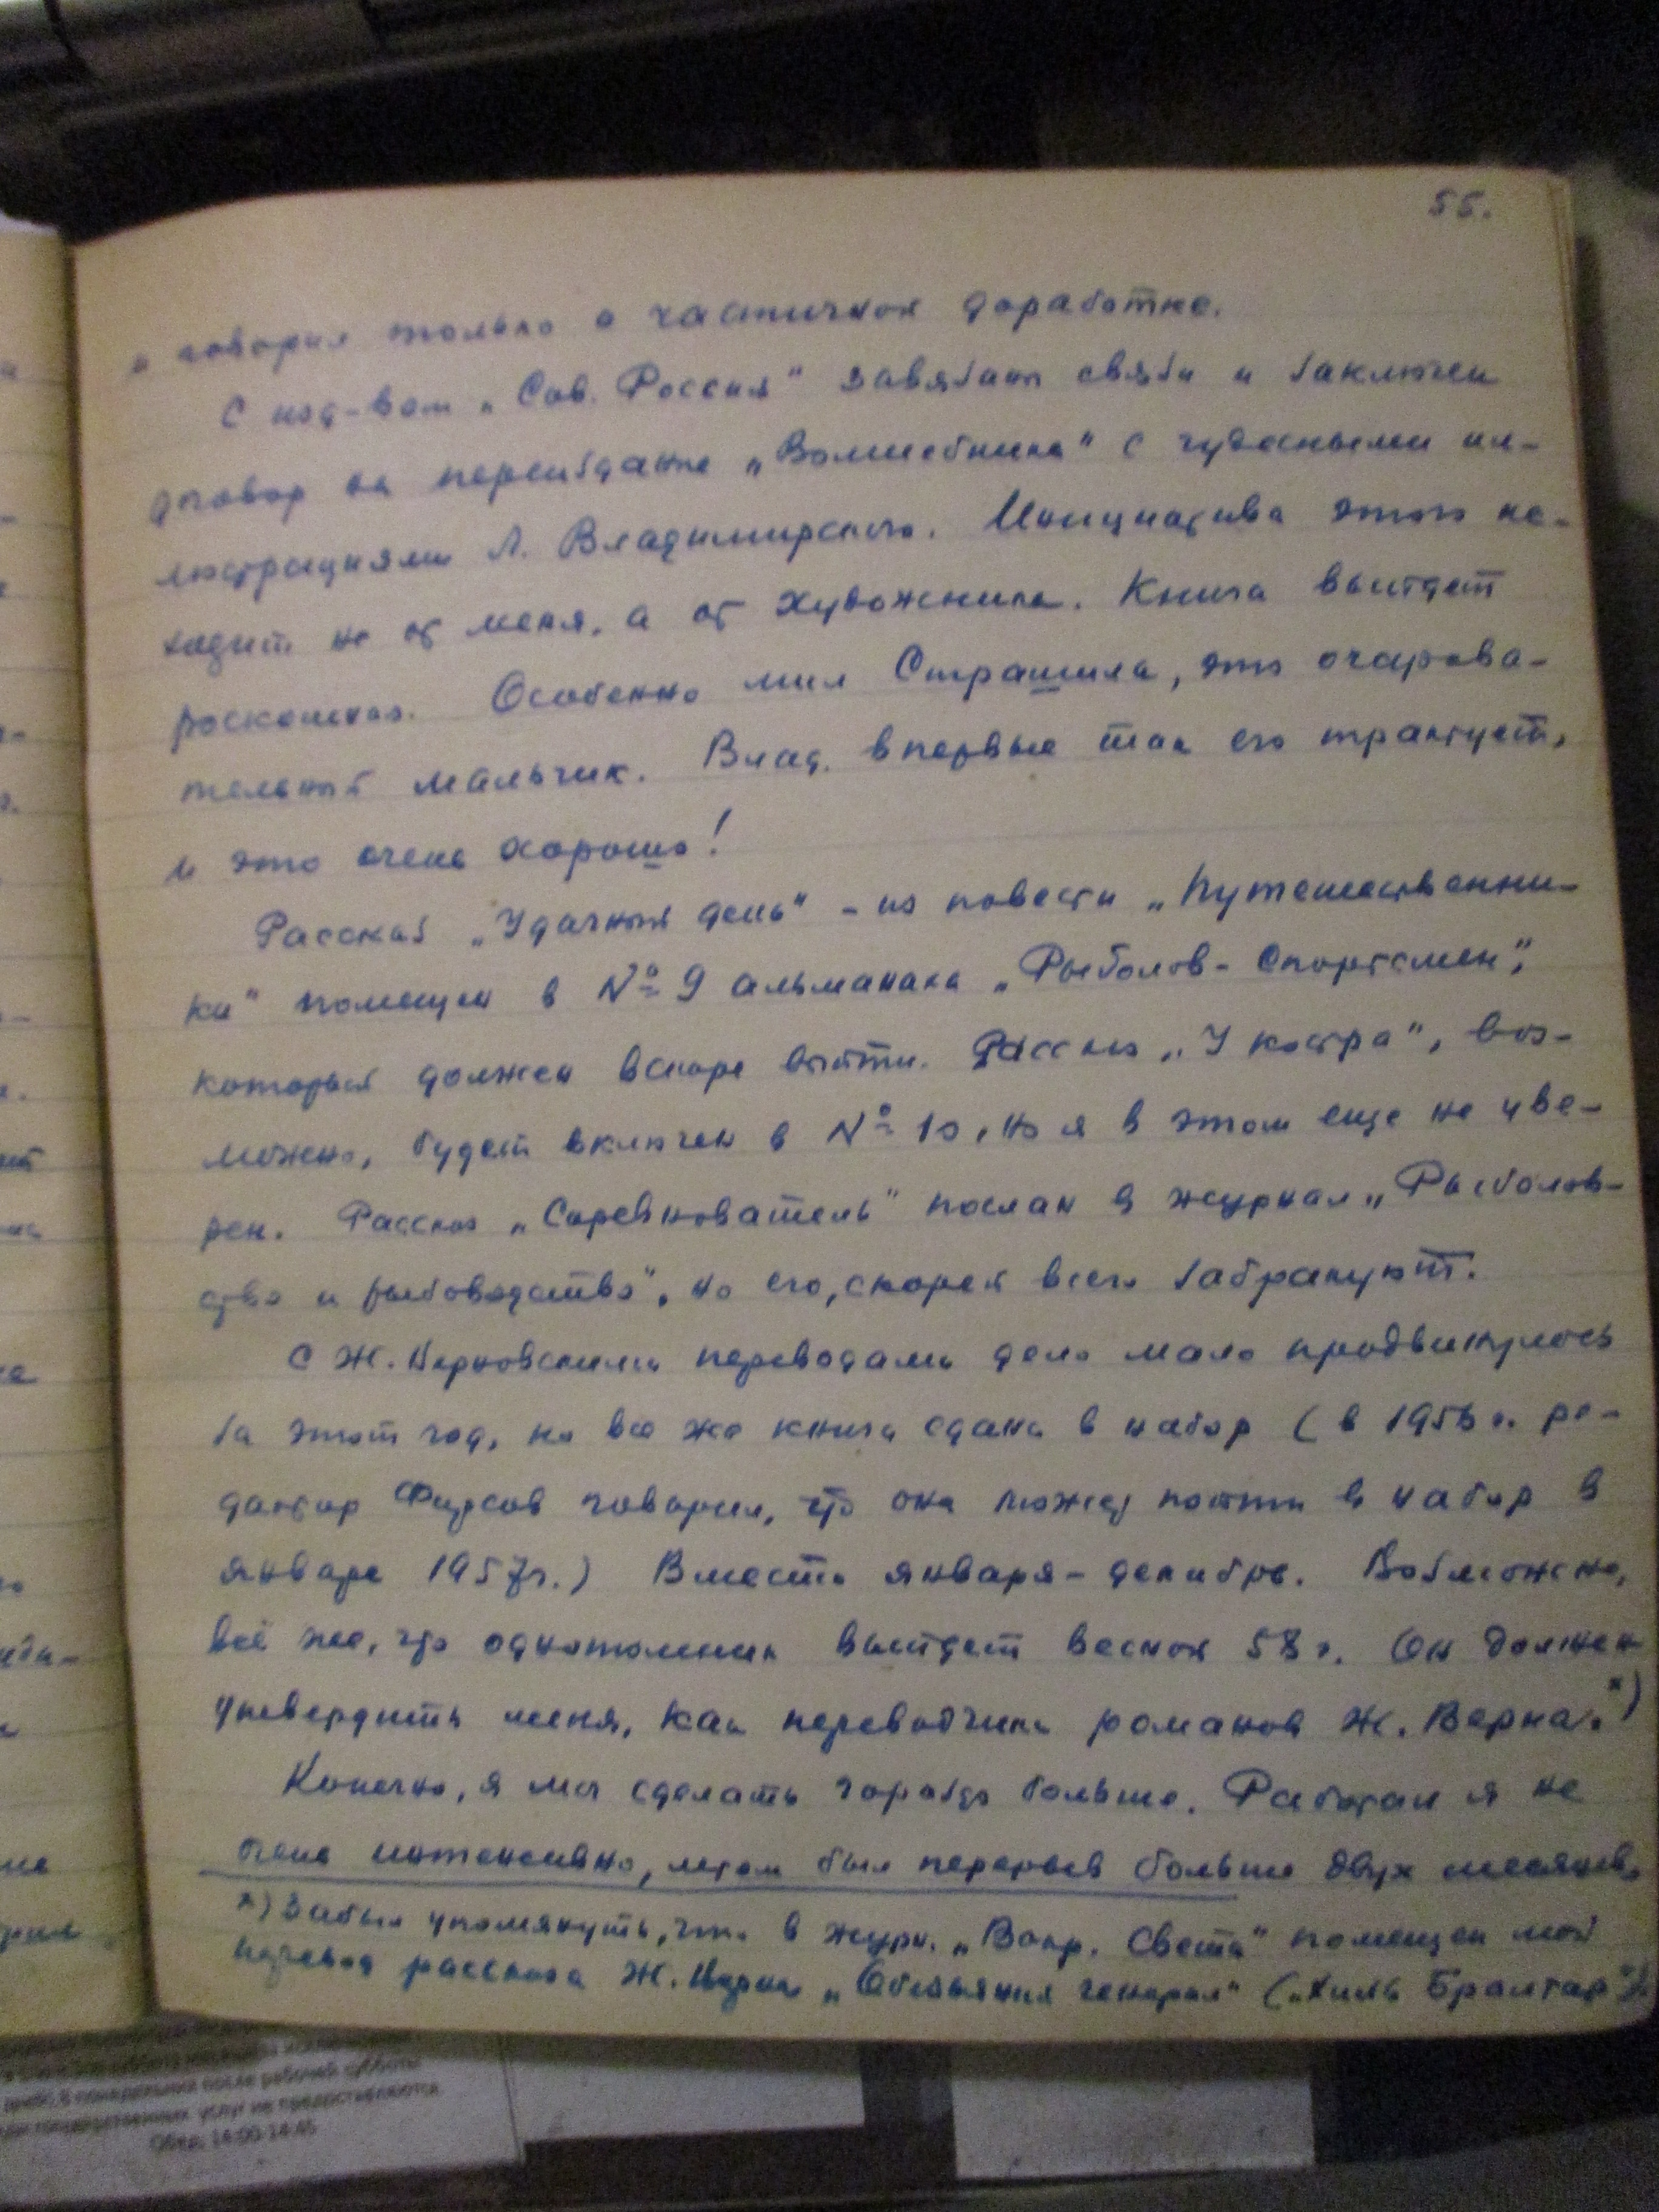 55.
и говорил только о частичной доработке.
С изд-вом „Сов. Россия" завязаны связи и заключен
договор на переиздание „Волшебника" с чудесными ил-
люстрациями Л. Владимирского. Инициатива этого ис-
ходит не от меня, а от художника. Книга выйдет
роскошная. Особенно мил Страшила, это очарова-
тельный мальчик. Влад. впервые так его трактует,
и это очень хорошо!
Рассказ „Удачный день" - из повести „Путешественни-
ки" помещен в № 9 альманаха „Рыболов-Спортсмен",
который должен вскоре выйти. Рассказ „У костра", воз-
можно, будет включен в № 10, но я в этом еще не уве-
рен. Рассказ „Соревнователь" послан в журнал „Рыболов-
ство и рыбоводство", но его, скорей всего забракуют.
С Ж. Верновскими переводами дело мало продвинулось
за этот год, но все же книга сдана в набор (в 1956 г. ре-
дактор Фирсов говорил, что она может пойти в набор в
январе 1957 г.) Вместо января - декабрь. Возможно,
всё же, что однотомник выйдет весной 58 г. Он должен
утвердить меня, как переводчика романов Ж. Верна.*)
Конечно, я мог сделать гораздо больше. Работал я не
очень интенсивно, летом был перерыв больше двух месяцев.
*) Забыл упомянуть, что в журн. „Вокр. Света" помещен мой
перевод рассказа Ж. Верна „Обезьяний генерал" („Хиль Бралтар").
Обед: 14:00-14:45